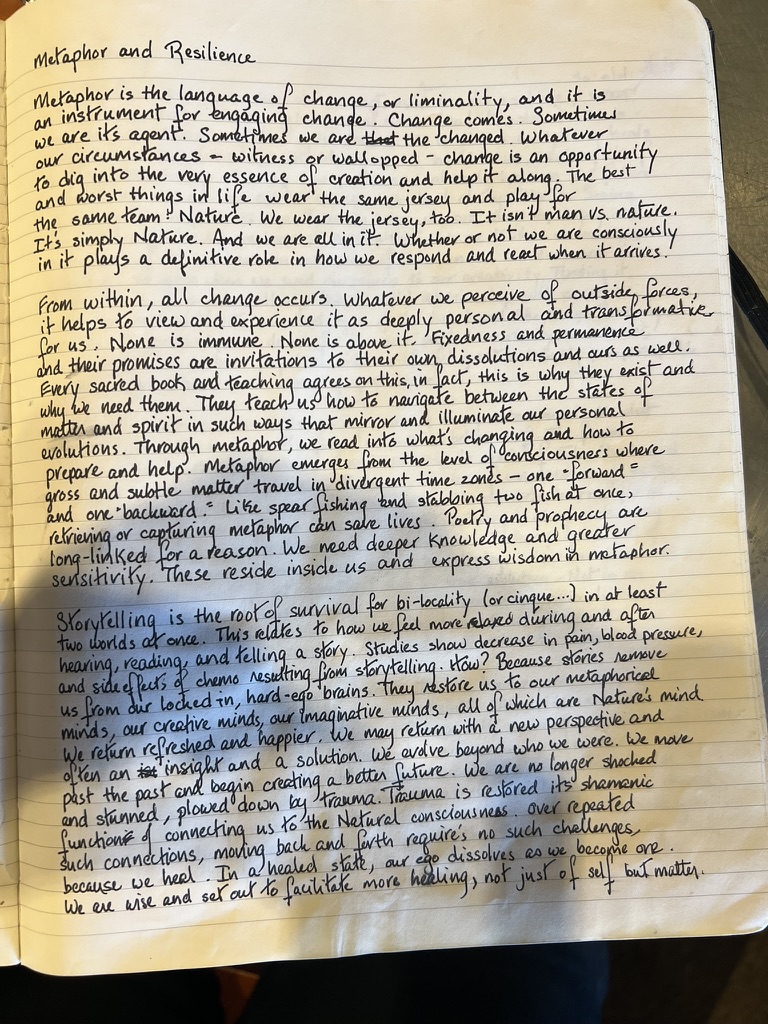 Metaphor and Resilience
Metaphor is the language of change, or liminality, and it is
an instrument for engaging change. Change comes. Sometimes
we are it's agent. Sometimes we are that the changed. Whatever
our circumstances – witness or wallopped – change is an opportunity
to dig into the very essence of creation and help it along. The best
and worst things in life wear the same jersey and play for
the same team: Nature. We wear the jersey, too. It isn't man vs. nature.
It's simply Nature. And we are all in it. Whether or not we are consciously
in it plays a definitive role in how we respond and react when it arrives.
From within, all change occurs. Whatever we perceive of outside forces,
it helps to view and experience it as deeply personal and transformative
for us. None is immune. None is above it. Fixedness and permanence
and their promises are invitations to their own dissolutions and ours as well.
Every sacred book and teaching agrees on this, in fact, this is why they exist and
why we need them. They teach us how to navigate between the states of
matter and spirit in such ways that mirror and illuminate our personal
evolutions. Through metaphor, we read into what's changing and how to
prepare and help. Metaphor emerges from the level of consciousness where
gross and subtle matter travel in divergent time zones – one "forward"
and one "backward." Like spear fishing and stabbing two fish at once,
retrieving or capturing metaphor can save lives. Poetry and prophecy are
long-linked for a reason. We need deeper knowledge and greater
sensitivity. These reside inside us and express wisdom in metaphor.
Storytelling is the root of survival for bi-locality (or cinque...) in at least
two worlds at once. This relates to how we feel more relaxed during and after
hearing, reading, and telling a story. Studies show decrease in pain, blood pressure,
and side effects of chemo resulting from storytelling. How? Because stories remove
us from our locked in, hard-ego brains. They restore us to our metaphorical
minds, our creative minds, our imaginative minds, all of which are Nature's mind
We return refreshed and happier. We may return with a new perspective and
often an insight and a solution. We evolve beyond who we were. We move
past the past and begin creating a better future. We are no longer shocked
and stunned, plowed down by trauma. Trauma is restored it's shamanic
function of connecting us to the Natural consciousness. Over repeated
such connections, moving back and forth require's no such challenges,
because we heal. In a healed state, our ego dissolves as we become one.
We are wise and set out to facilitate more healing, not just of self but matter.